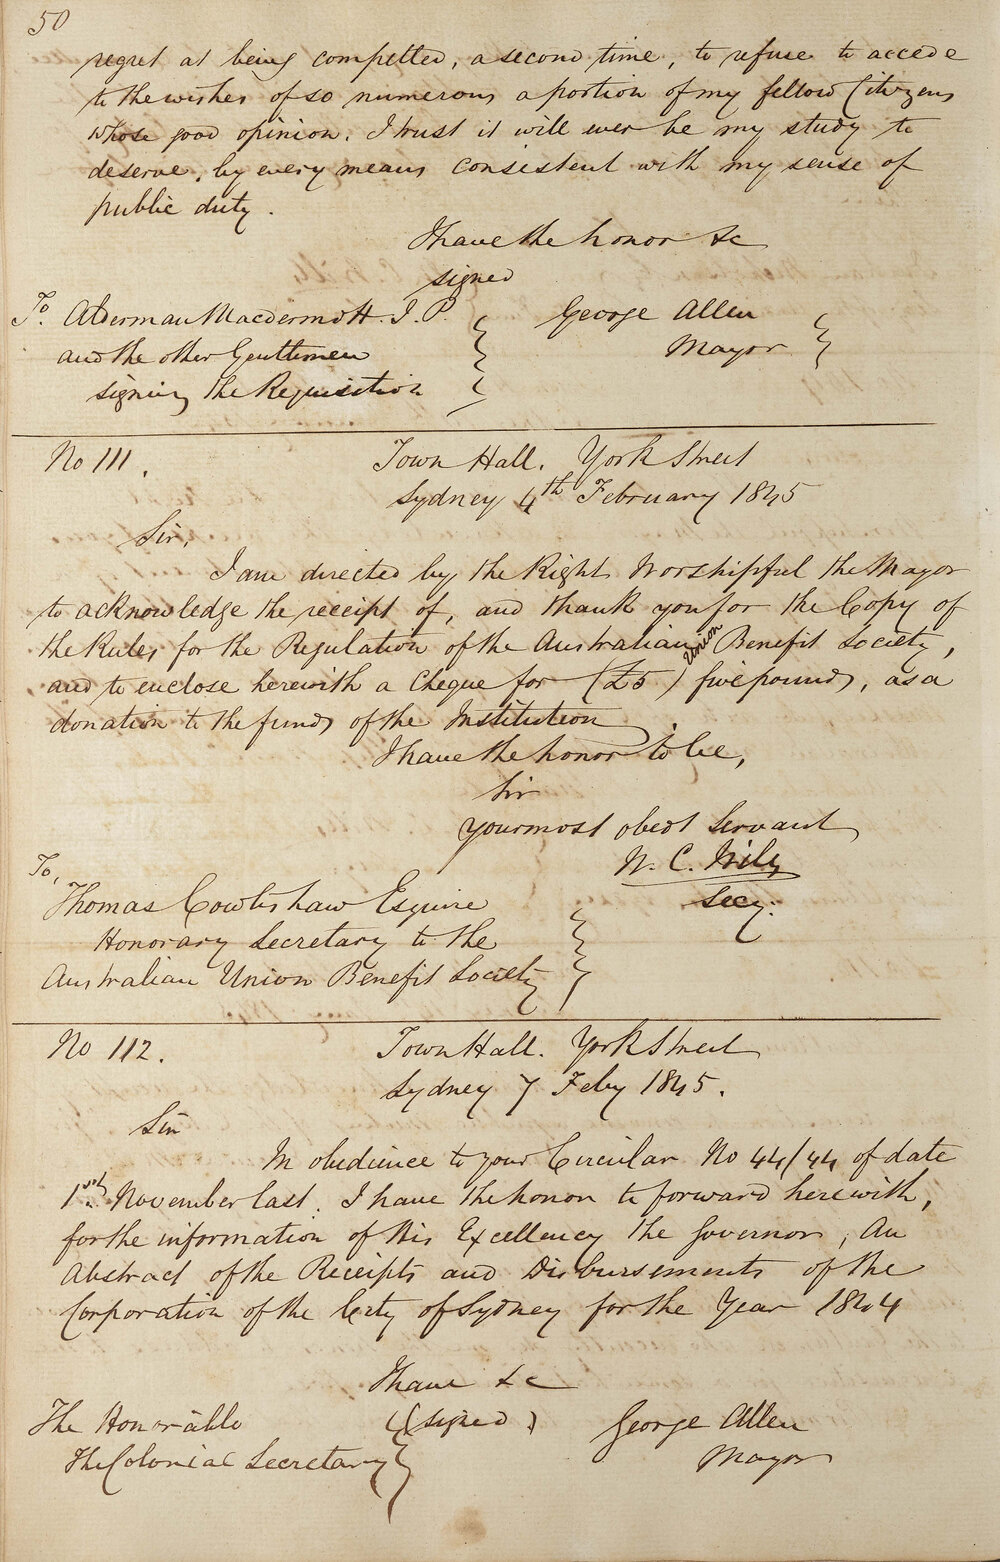 50
regret at being compelled, a second time, to refuse to accede
to the wishes of so numerous a portion of my fellow Citizens
whose good opinion, I trust it will ever be my study to
deserve, by every means consistent with my sense of
public duty.
I have the honor &c
signed
To. Alderman Macdermott. J. P.
George Allen
and the other Gentlemen
Mayor
signing the Requisition
No 111.
Town Hall. York Street
Sydney 4th February 1845
Sir,
I am directed by the Right Worshipful the Mayor
to acknowledge the receipt of, and thank you for the Copy of
the Rules for the Regulation of the Australian Union Benefit Society,
and to enclose herewith a Cheque for (£5) five pounds, as a
donation to the funds of the Institution.
I have the honor to be,
Sir
your most obedt Servant
To,
W. C. Wily
Thomas Cowlishaw Esquire
Secy.
Honorary Secretary to the
Australian Union Benefit Society
No 112.
Town Hall. York Street
Sydney 7 Feby 1845.
Sir
In obedience to your Circular No 44/44 of date
1st November last. I have the honor to forward herewith,
for the information of His Excellency the Governor, An
Abstract of the Receipts and Disbursements of the
Corporation of the City of Sydney for the Year 1844
I have &c
The Honorable
(signed)
George Allen
The Colonial Secretary
Mayor